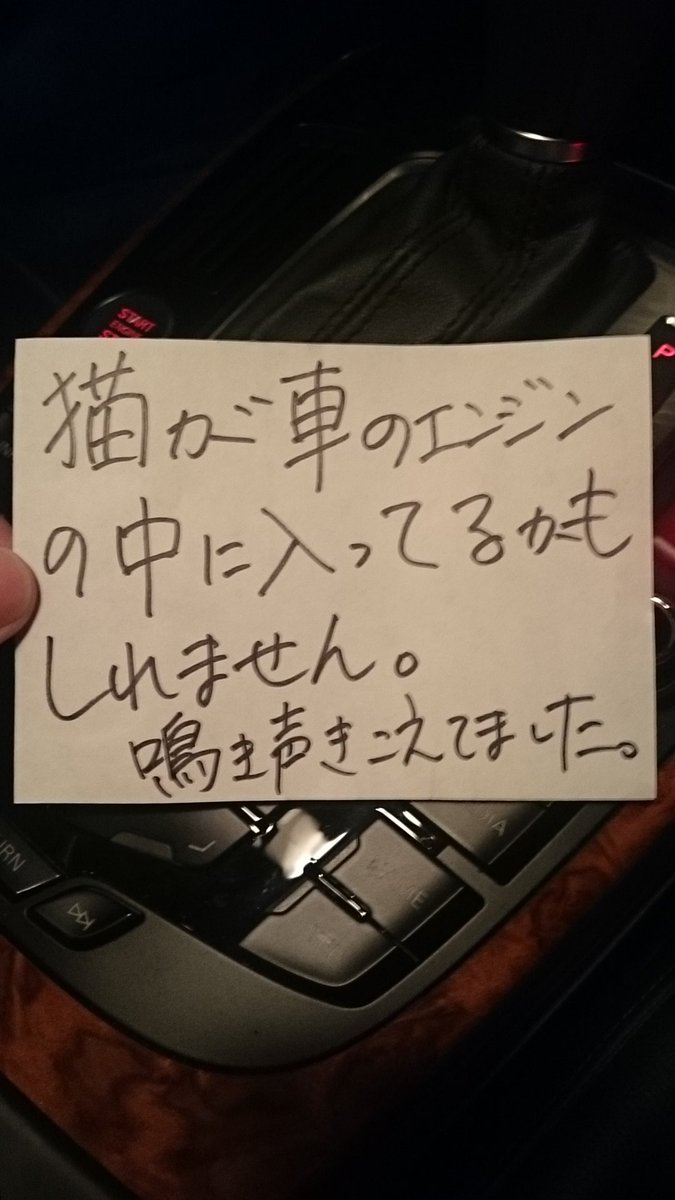 START
ENGINE
P
猫が車のエンジン
の中に入ってるかも
しれません。
鳴き声きこえてました。